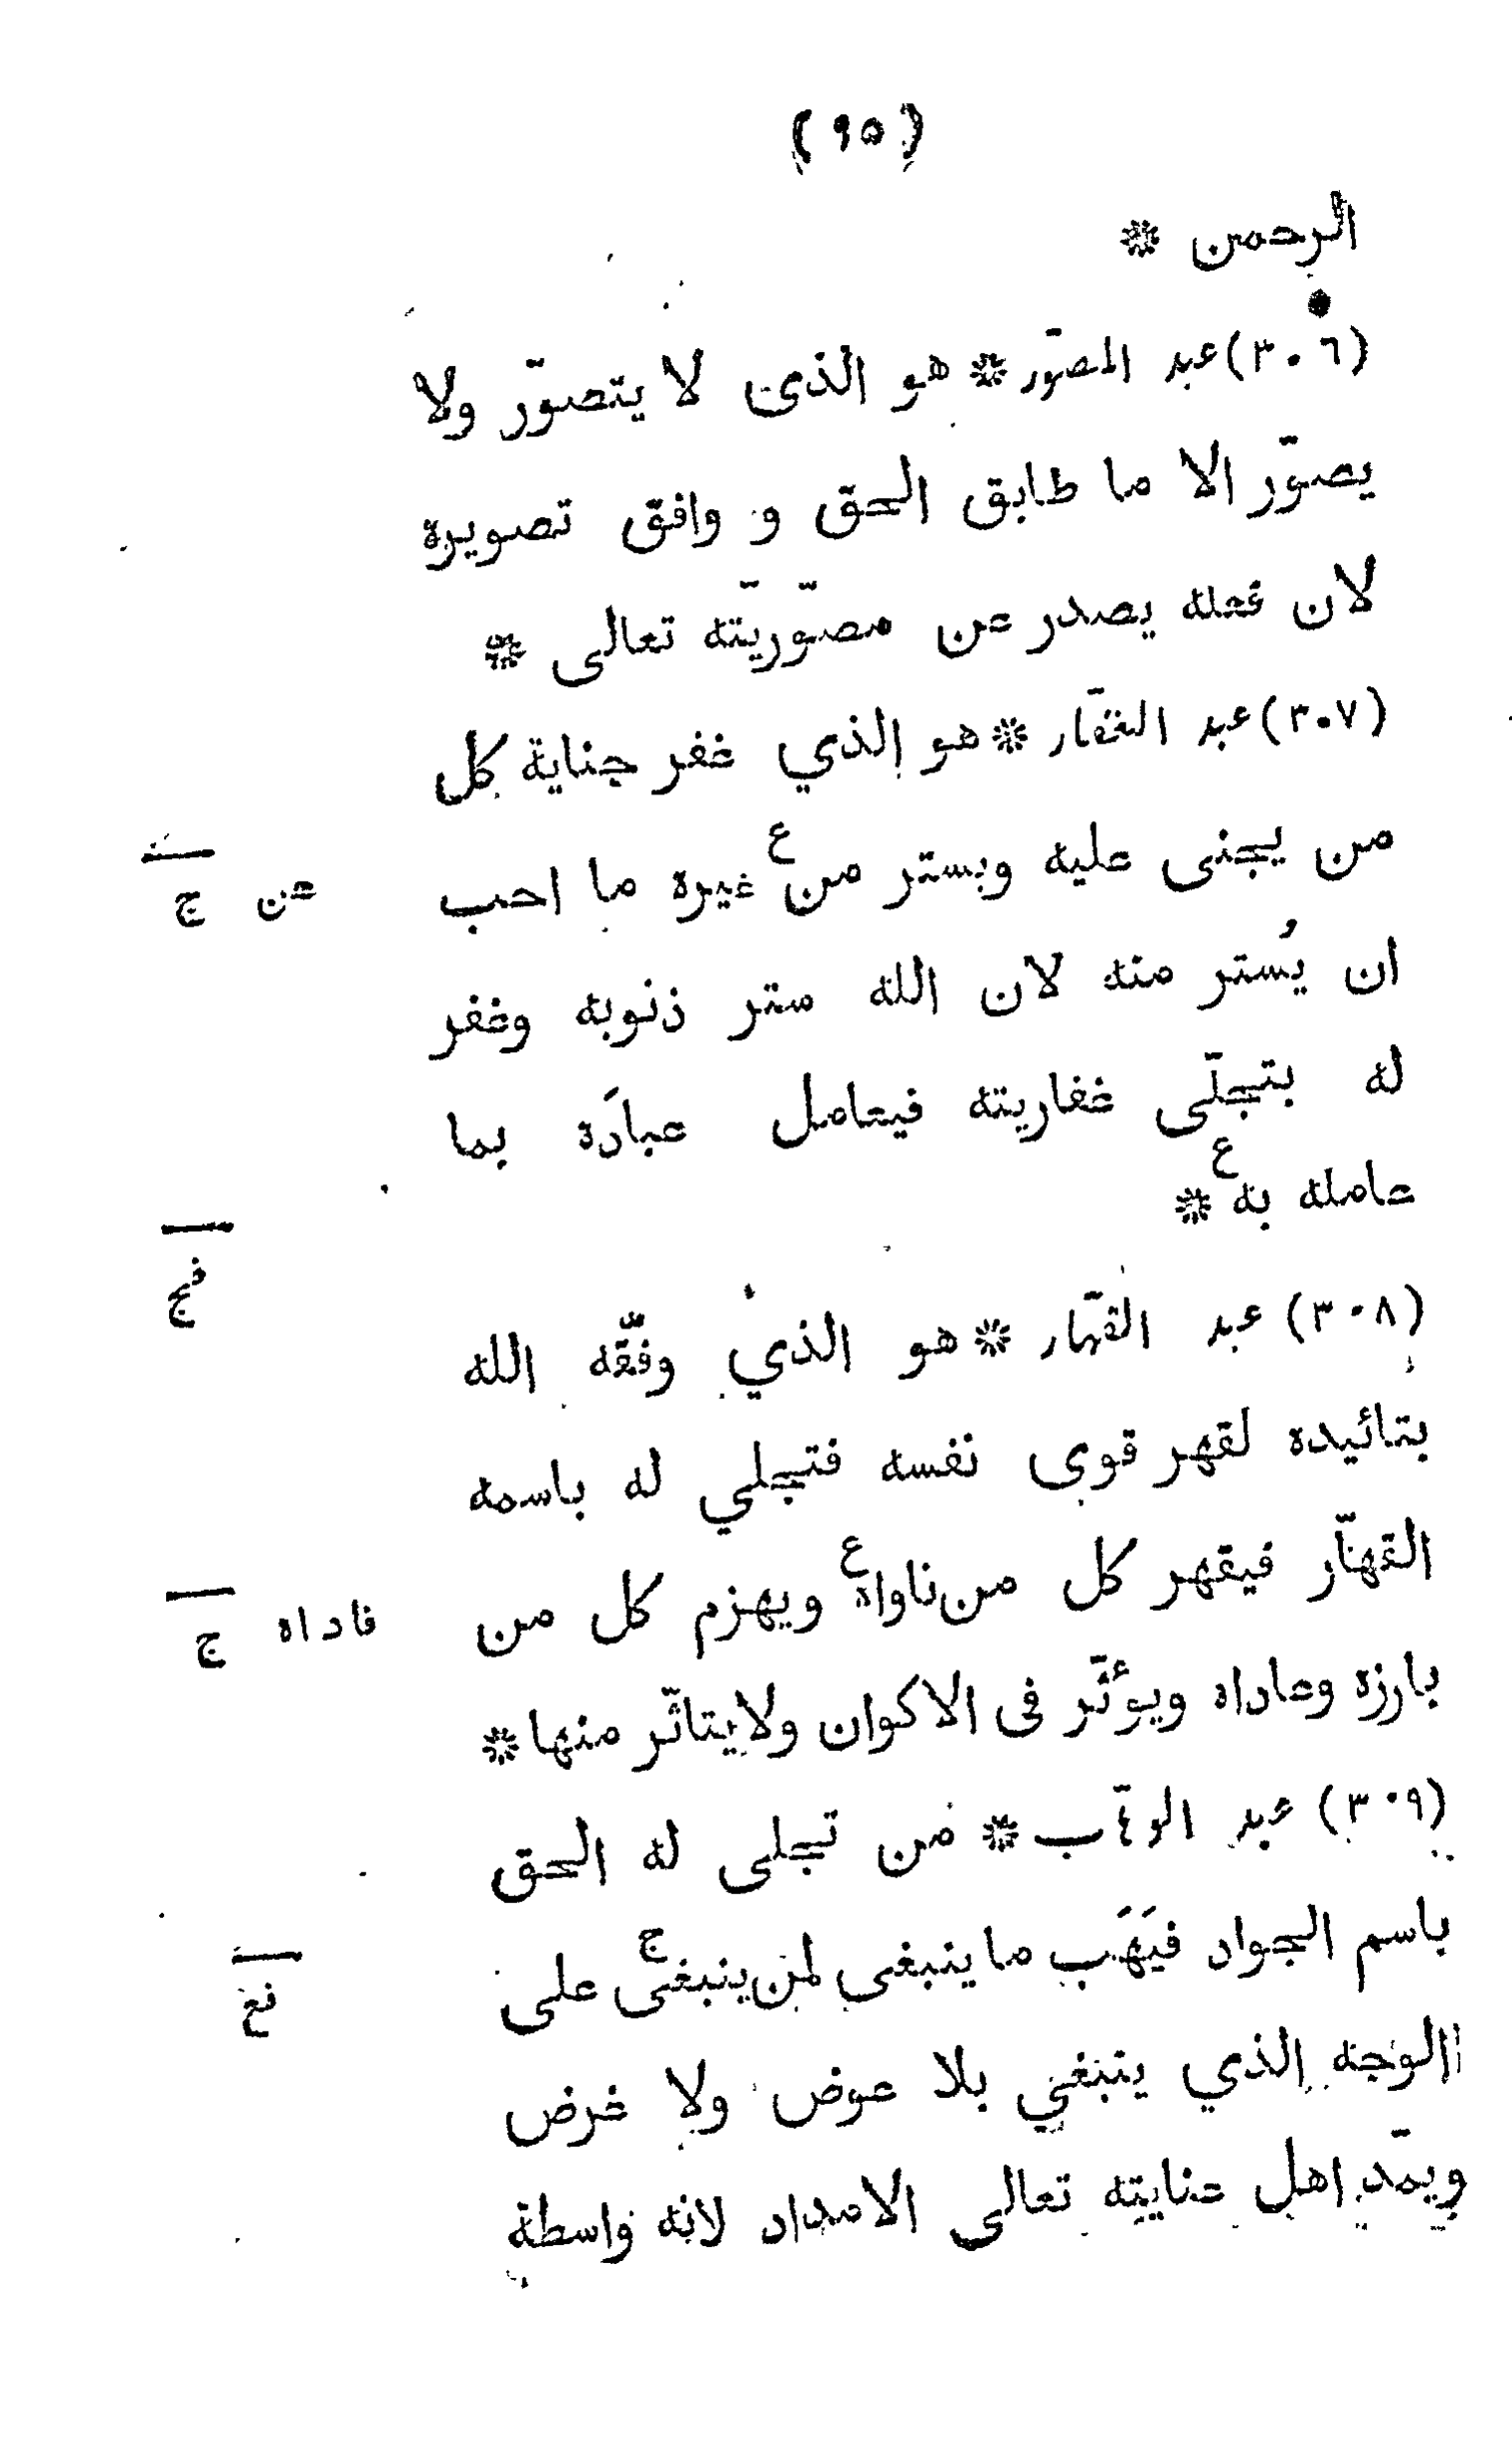 (٩٥)
الرحمن *
(٣٠٦) عبد المصوّر * هو الذى لا يتصوّر ولا
يصوّر الا ما طابق الحق و وافق تصويرة
لان فعله يصدر عن مصوّريّته تعالى *
(٣٠٧) عبد الغفّار * هو الذي غفر جناية كل
من يجنى عليه ويستر من ع غيرة ما احب
عن ج
ان يُستر منه لان الله ستر ذنوبه وغفر
له بتجلّى غفاريته فيعامل عبادَة بما
عامله به ع *
فج
(٣٠٨) عبد القهّار * هو الذي وفّقه الله
بتائيده لقهر قوى نفسه فتجلي له باسمه
القهّار فيقهر كل من ناواه ع ويهزم كل من
فاداه ج
بارزة وعاداه ويؤثّر فى الاكوان ولا يتاثّر منها *
(٣٠٩) عبد الوهّاب * من تجلى له الحق
باسم الجواد فيَهَب ما ينبغى لمن ينبغى ج على
نع
الوجه الذي ينبغي بلا عوض ولا غرض
ويمدّ اهل عنايته تعالى الامداد لانه واسطة